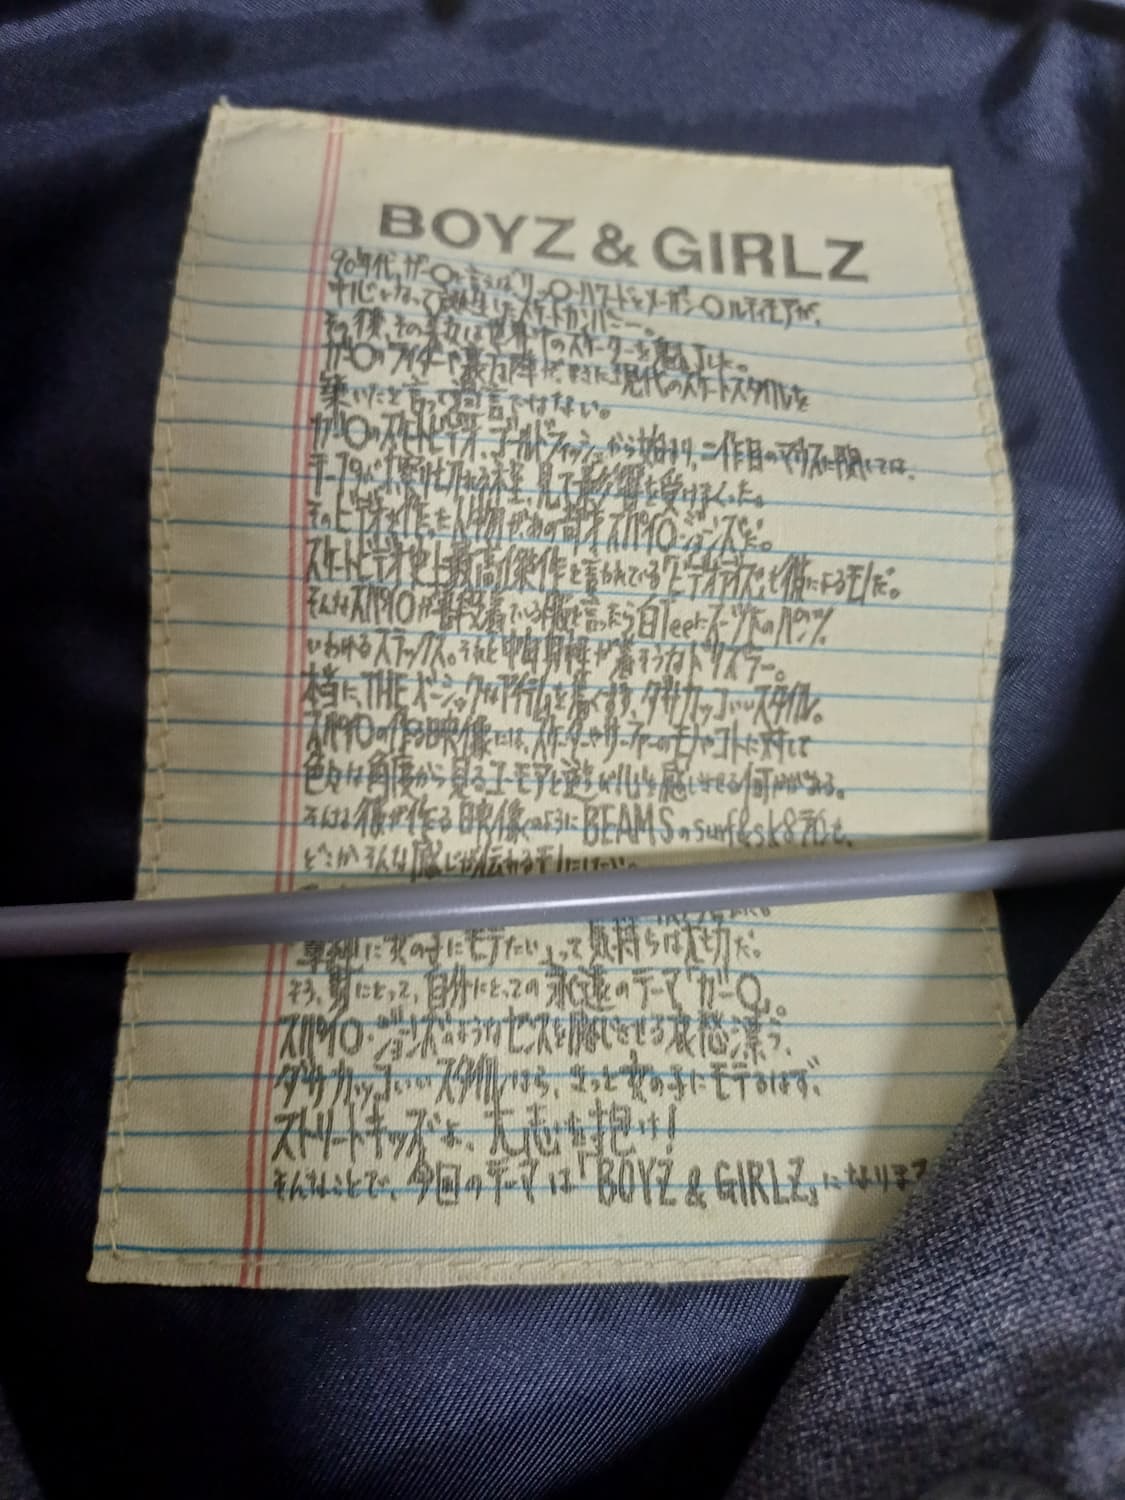 BOYZ & GIRLZ
90年代、ガー〇と言えばリッ〇・ハワードとマイ〇
その後、その魅力は世界中のスケーターを魅了した。
ガ〇のライダーや裏方陣が、まさに現代のスケートスタイルを
築いたと言って過言ではない。
ガ〇のスケートビデオ、ゴールドフィッシュから始まり、二作目のマウスに関しては、
テープが擦り切れる程、見て影響を受けまくった。
そのビデオを作った人物が、あの奇才スパイ〇・ジョンズだ。
スケートビデオ史上最高傑作と言われている「ビデオデイズ」も彼によるモノだ。
そんなスパイ〇が普段着ている服と言ったら白Teeにスーツ
いわゆるスラックス。それと中
本当にTHEベーシックなアイテムを
ダサカッコいいスタイル。
スパイ〇の作る映像には、スケーターやサーファーのモノやコトに対して
色々な角度から見るユーモアと遊び心を感じさせる何かがある。
そんな彼が作る映像のようにBEAMSのsurf&sk8
どこかそんな感じが伝わるモノにしたい。
単純に「女の子にモテたい」って気持ちは大切だ。
そう、男にとって、自分にとっての永遠のテーマ「ガー〇」。
スパイ〇・ジョンズのようなセンスを感じさせる哀愁漂う、
ダサカッコいいスタイルなら、きっと女の子にモテるはず、
ストリートキッズよ、大志を抱け!
そんなことで、今回のテーマは「BOYZ & GIRLZ」になります